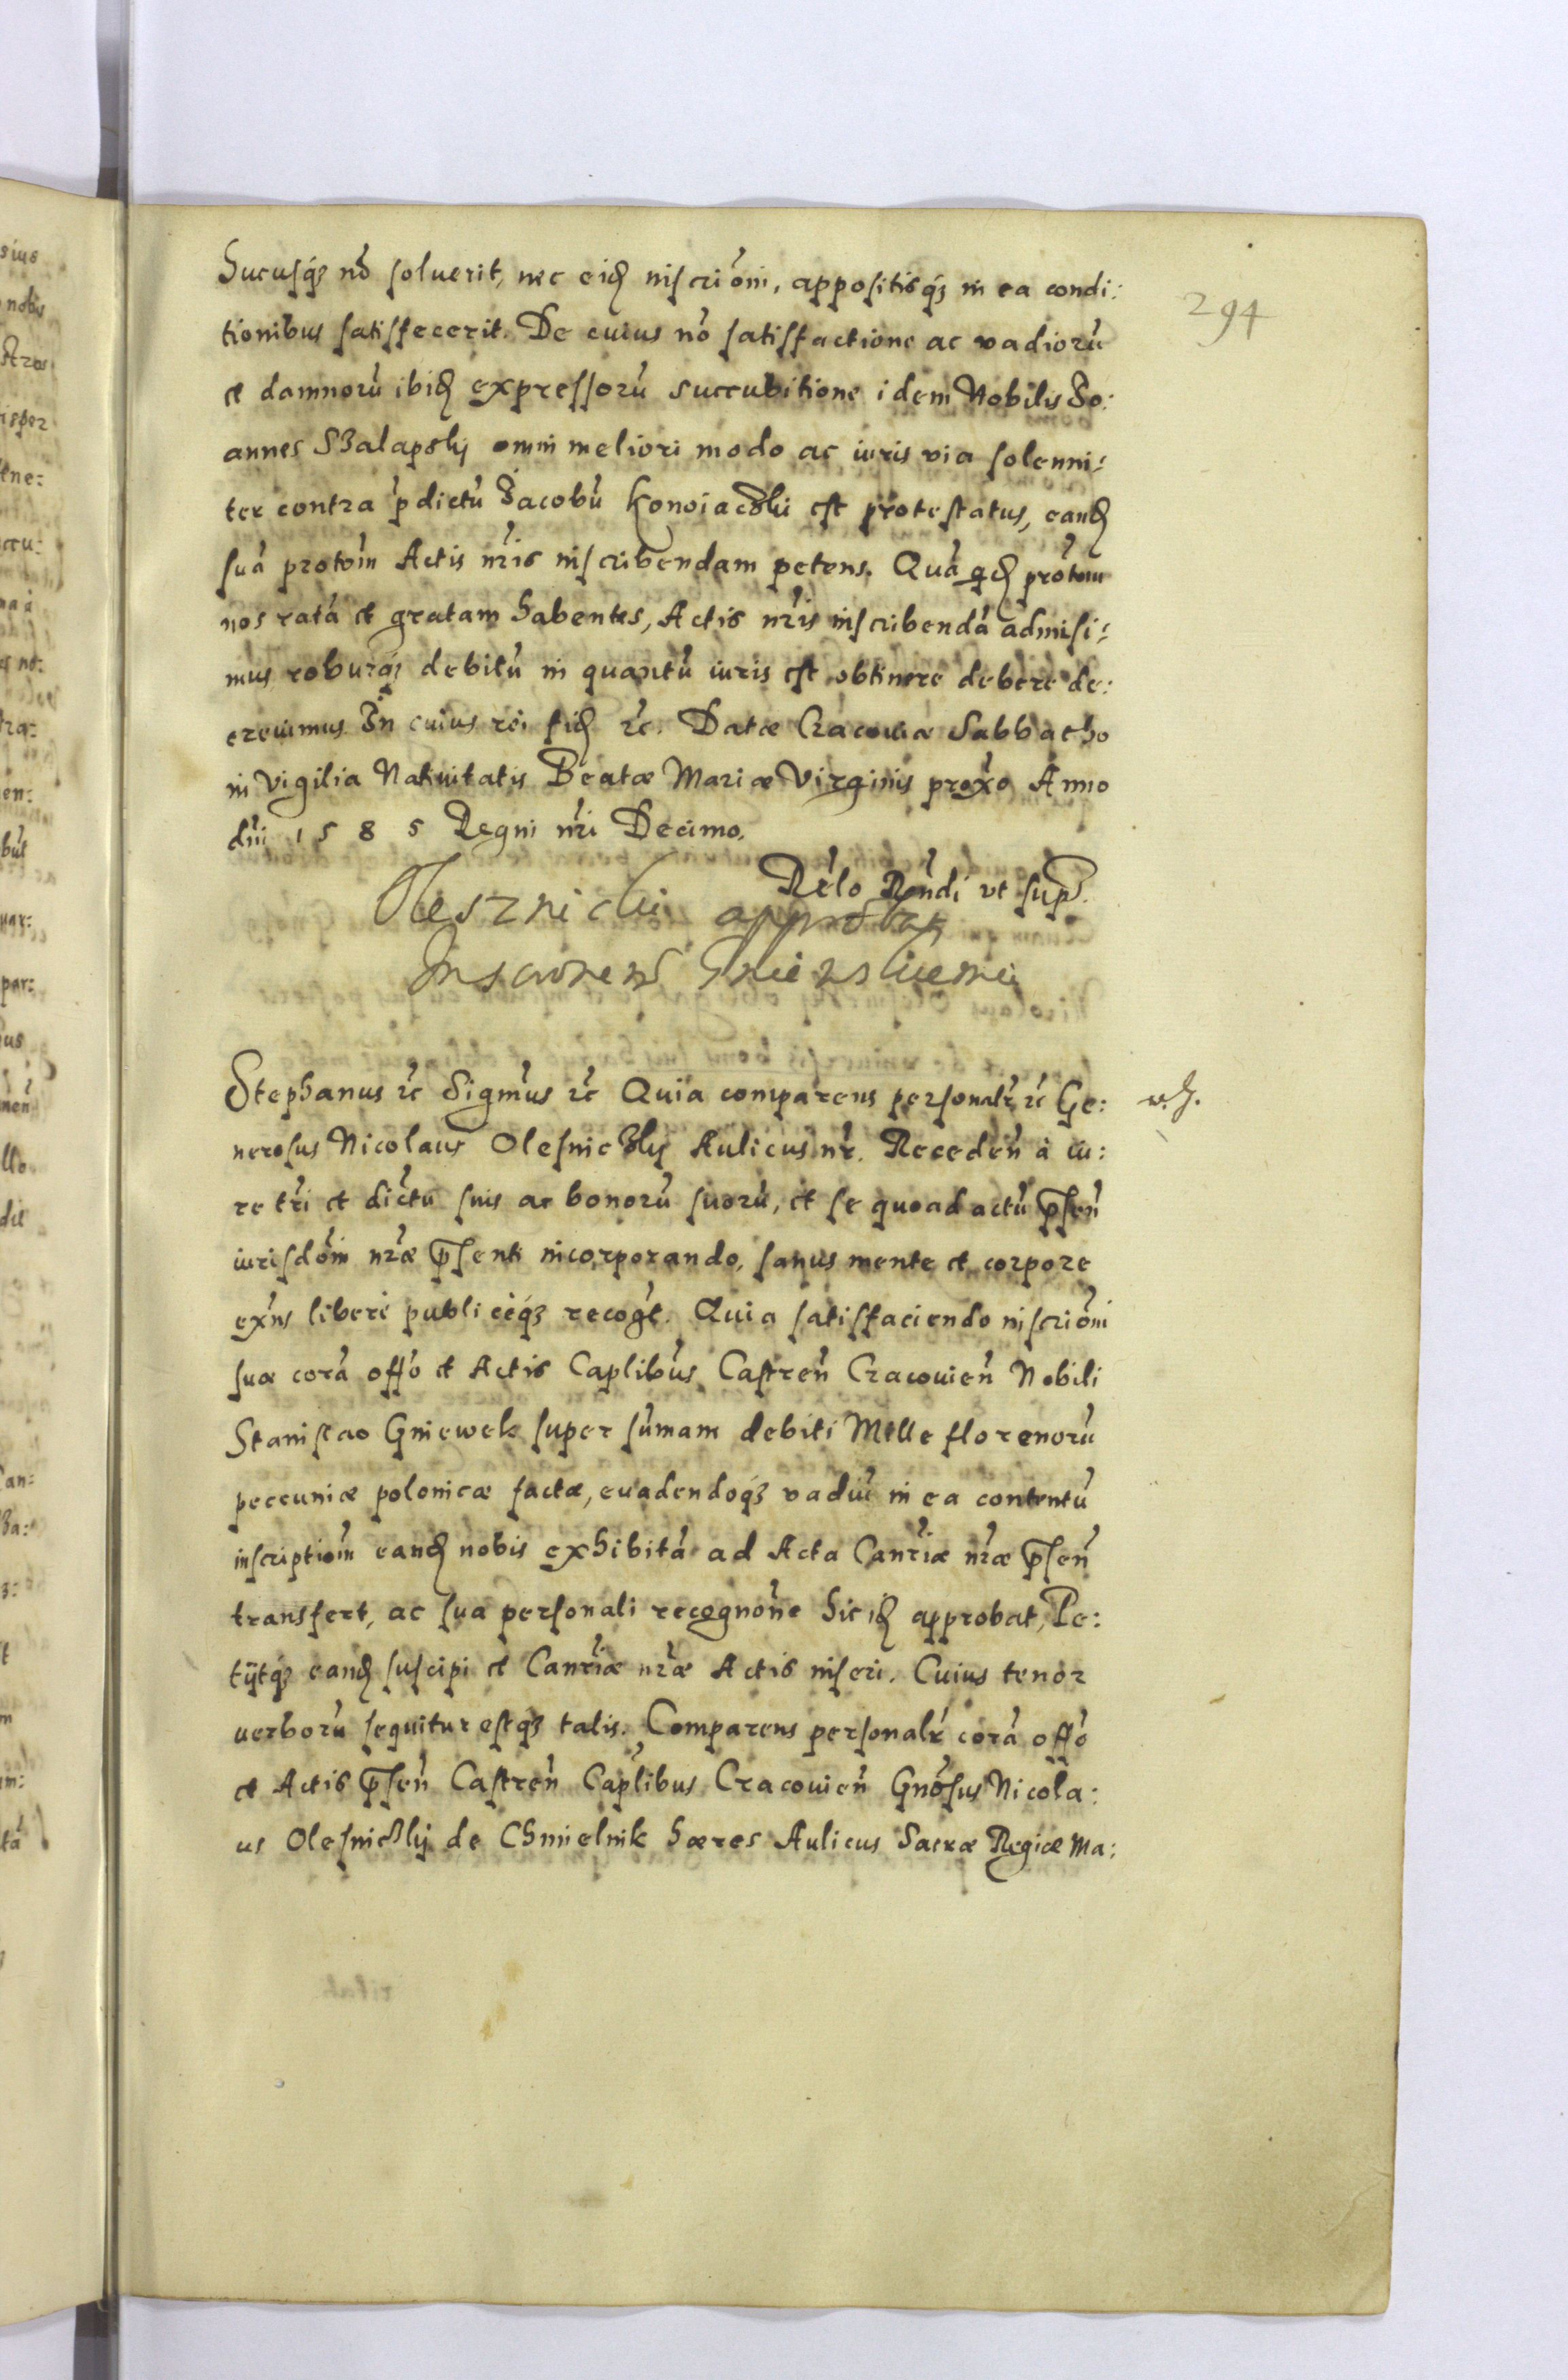 294
hucusq́ꝫ nō soluerit, nec eid inscriōni, appositisq́ꝫ in ea condi:
tionibus satisfecerit. De cuius nō satisfactione ac vadiorū
et damnorū ibid expressorū succubitione idem Nobilis Jo:
annes Szalapskj omni meliori modo ac iuris via solenni:
ter contra p̄dictū Jacobū Konoiaczki est protestatus, eand
suā protōm Actis nr̄is inscribendam petens. Quā qd protōm
nos ratā et gratam habentes, Actis nr̄is inscribendā admisi:
mus roburq́ꝫ debitū in quantū iuris est obtinere debere de:
creuimus. In cuius rei fid ꝛc. Datæ Cracouiæ Sabbatho
in vigilia Natiuitatis Beatæ Mariæ Virginis proxō Anno
dn̄i 1585 Regni nr̄i Decimo.
Rēlo Rn̄di vt supꝰ.
Olesznicki approbat
Inscrōnem Gniewkiemu
Stephanus ꝛc Sigm̄us ꝛc Quia comparens personalr̄ ꝛc Ge:
nerosus Nicolaus Olesniczkj Aulicus nr̄. Receden̄ à iu:
re tr̄i et dictū suis ac bonorū suorū, et se quoad actū p̄sen̄
iurisdōm nr̄æ p̄senti incorporando, sanus mente et corpore
exn̄s liberè publiceq́ꝫ recogt̄. Quia satisfaciendo inscriōni
suæ corā offō et Actis Caplibūs Castren̄ Cracouien̄ Nobili
Stanislao Gniewek super sūmam debiti Mille florenorū
peccuniæ polonicæ factæ, euadendoq́ꝫ vadiū in ea contentū
inscriptiōm eand nobis exhibitā ad Acta Canr̄iæ nr̄æ p̄sen̄
transfert, ac sua personali recognōne hic id approbat, Pe:
tijtq́ꝫ eand suscipi et Canr̄iæ nr̄æ Actis inseri. Cuius tenor
uerborū sequitur estq́ꝫ talis. Comparens personalr̄ corā offō
et Actis p̄sen̄ Castren̄ Caplībus Cracouien̄ Gnōsus Nicola:
us Olesniczkj de Chmielnik hæres Aulicus Sacræ Regiæ Ma: